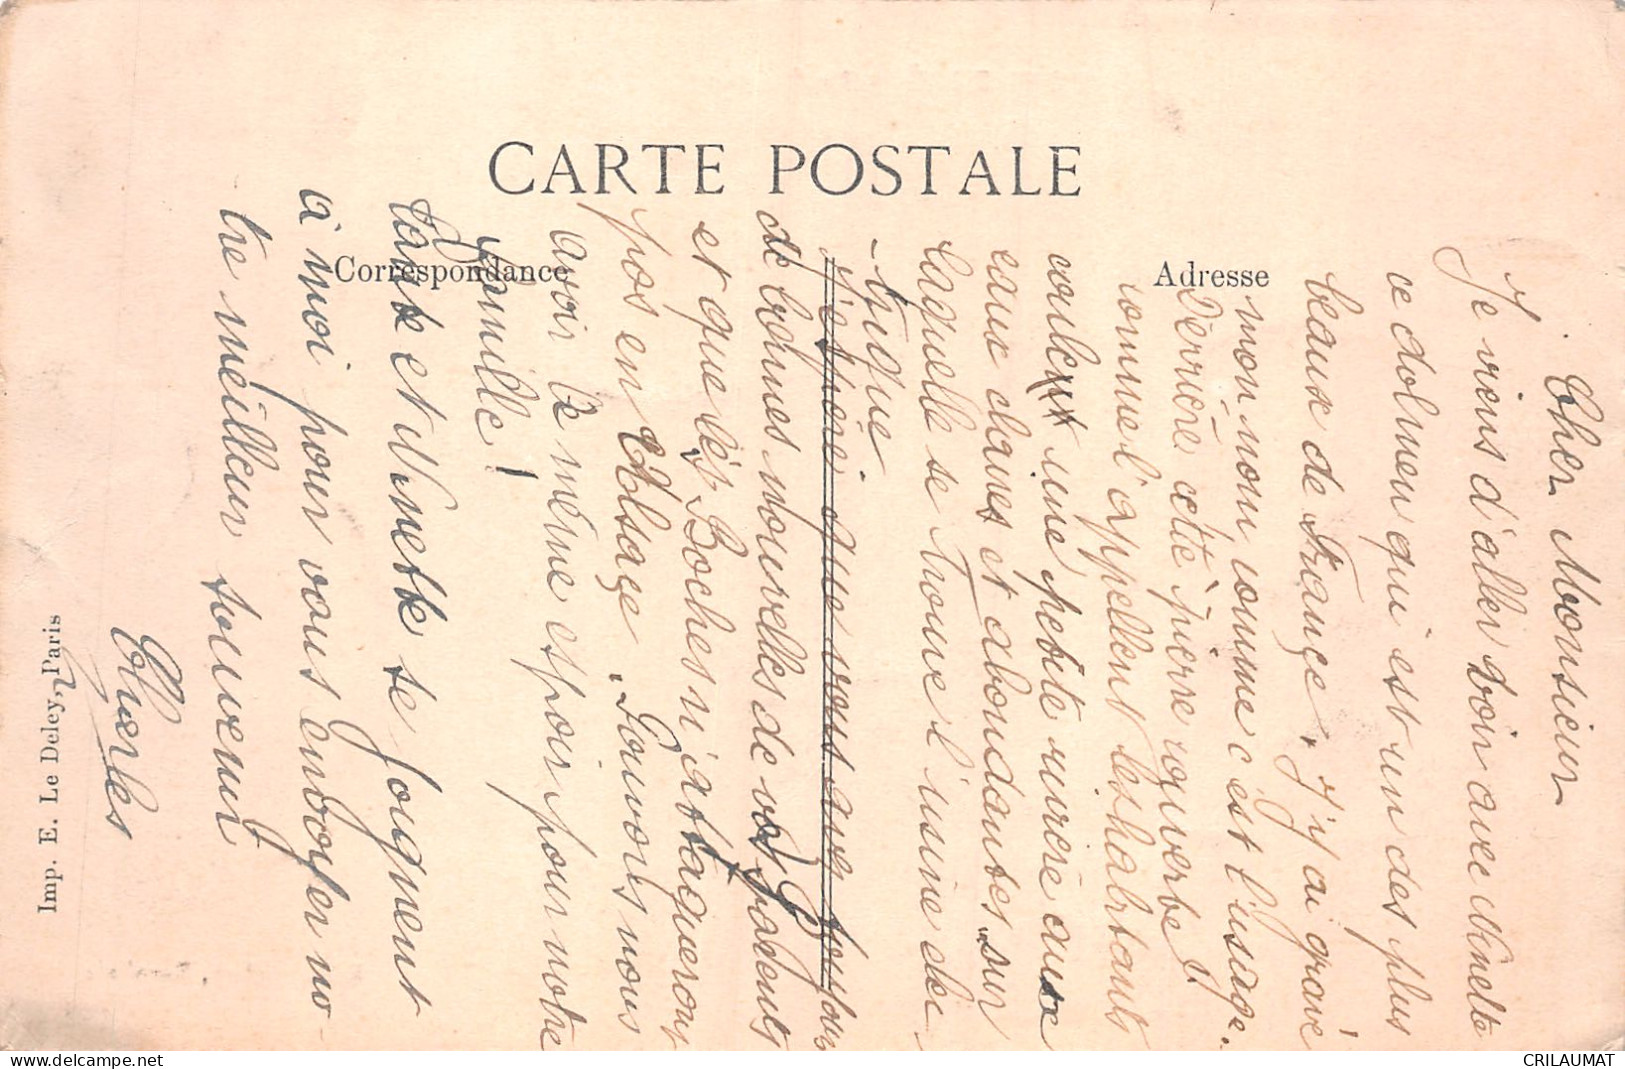 CARTE POSTALE
Correspondance
Adresse
Cher Monsieur
Je viens d'aller voir avec Ninette
ce dolmen qui est un des plus
beaux de França. J'y ai gravé
mon nom comme c'est l'usage.
Derrière cète pierre couverte
comme l'appellent les habitants
coule une petite rivière aux
eaux claires et abondantes sur
laquelle se trouve l'usine élec-
-trique
J'espère que vous avez toujours
de bonnes nouvelles de vos parents
et que les Boches n'attaqueront
pas en Alsace. Pouvons nous
avoir le même espoir pour notre
famille!
Tante et Ninette se joignent
à moi pour vous envoyer no-
tre meilleur souvenir
Charles
Imp. E. Le Deley, Paris
CRILAUMAT